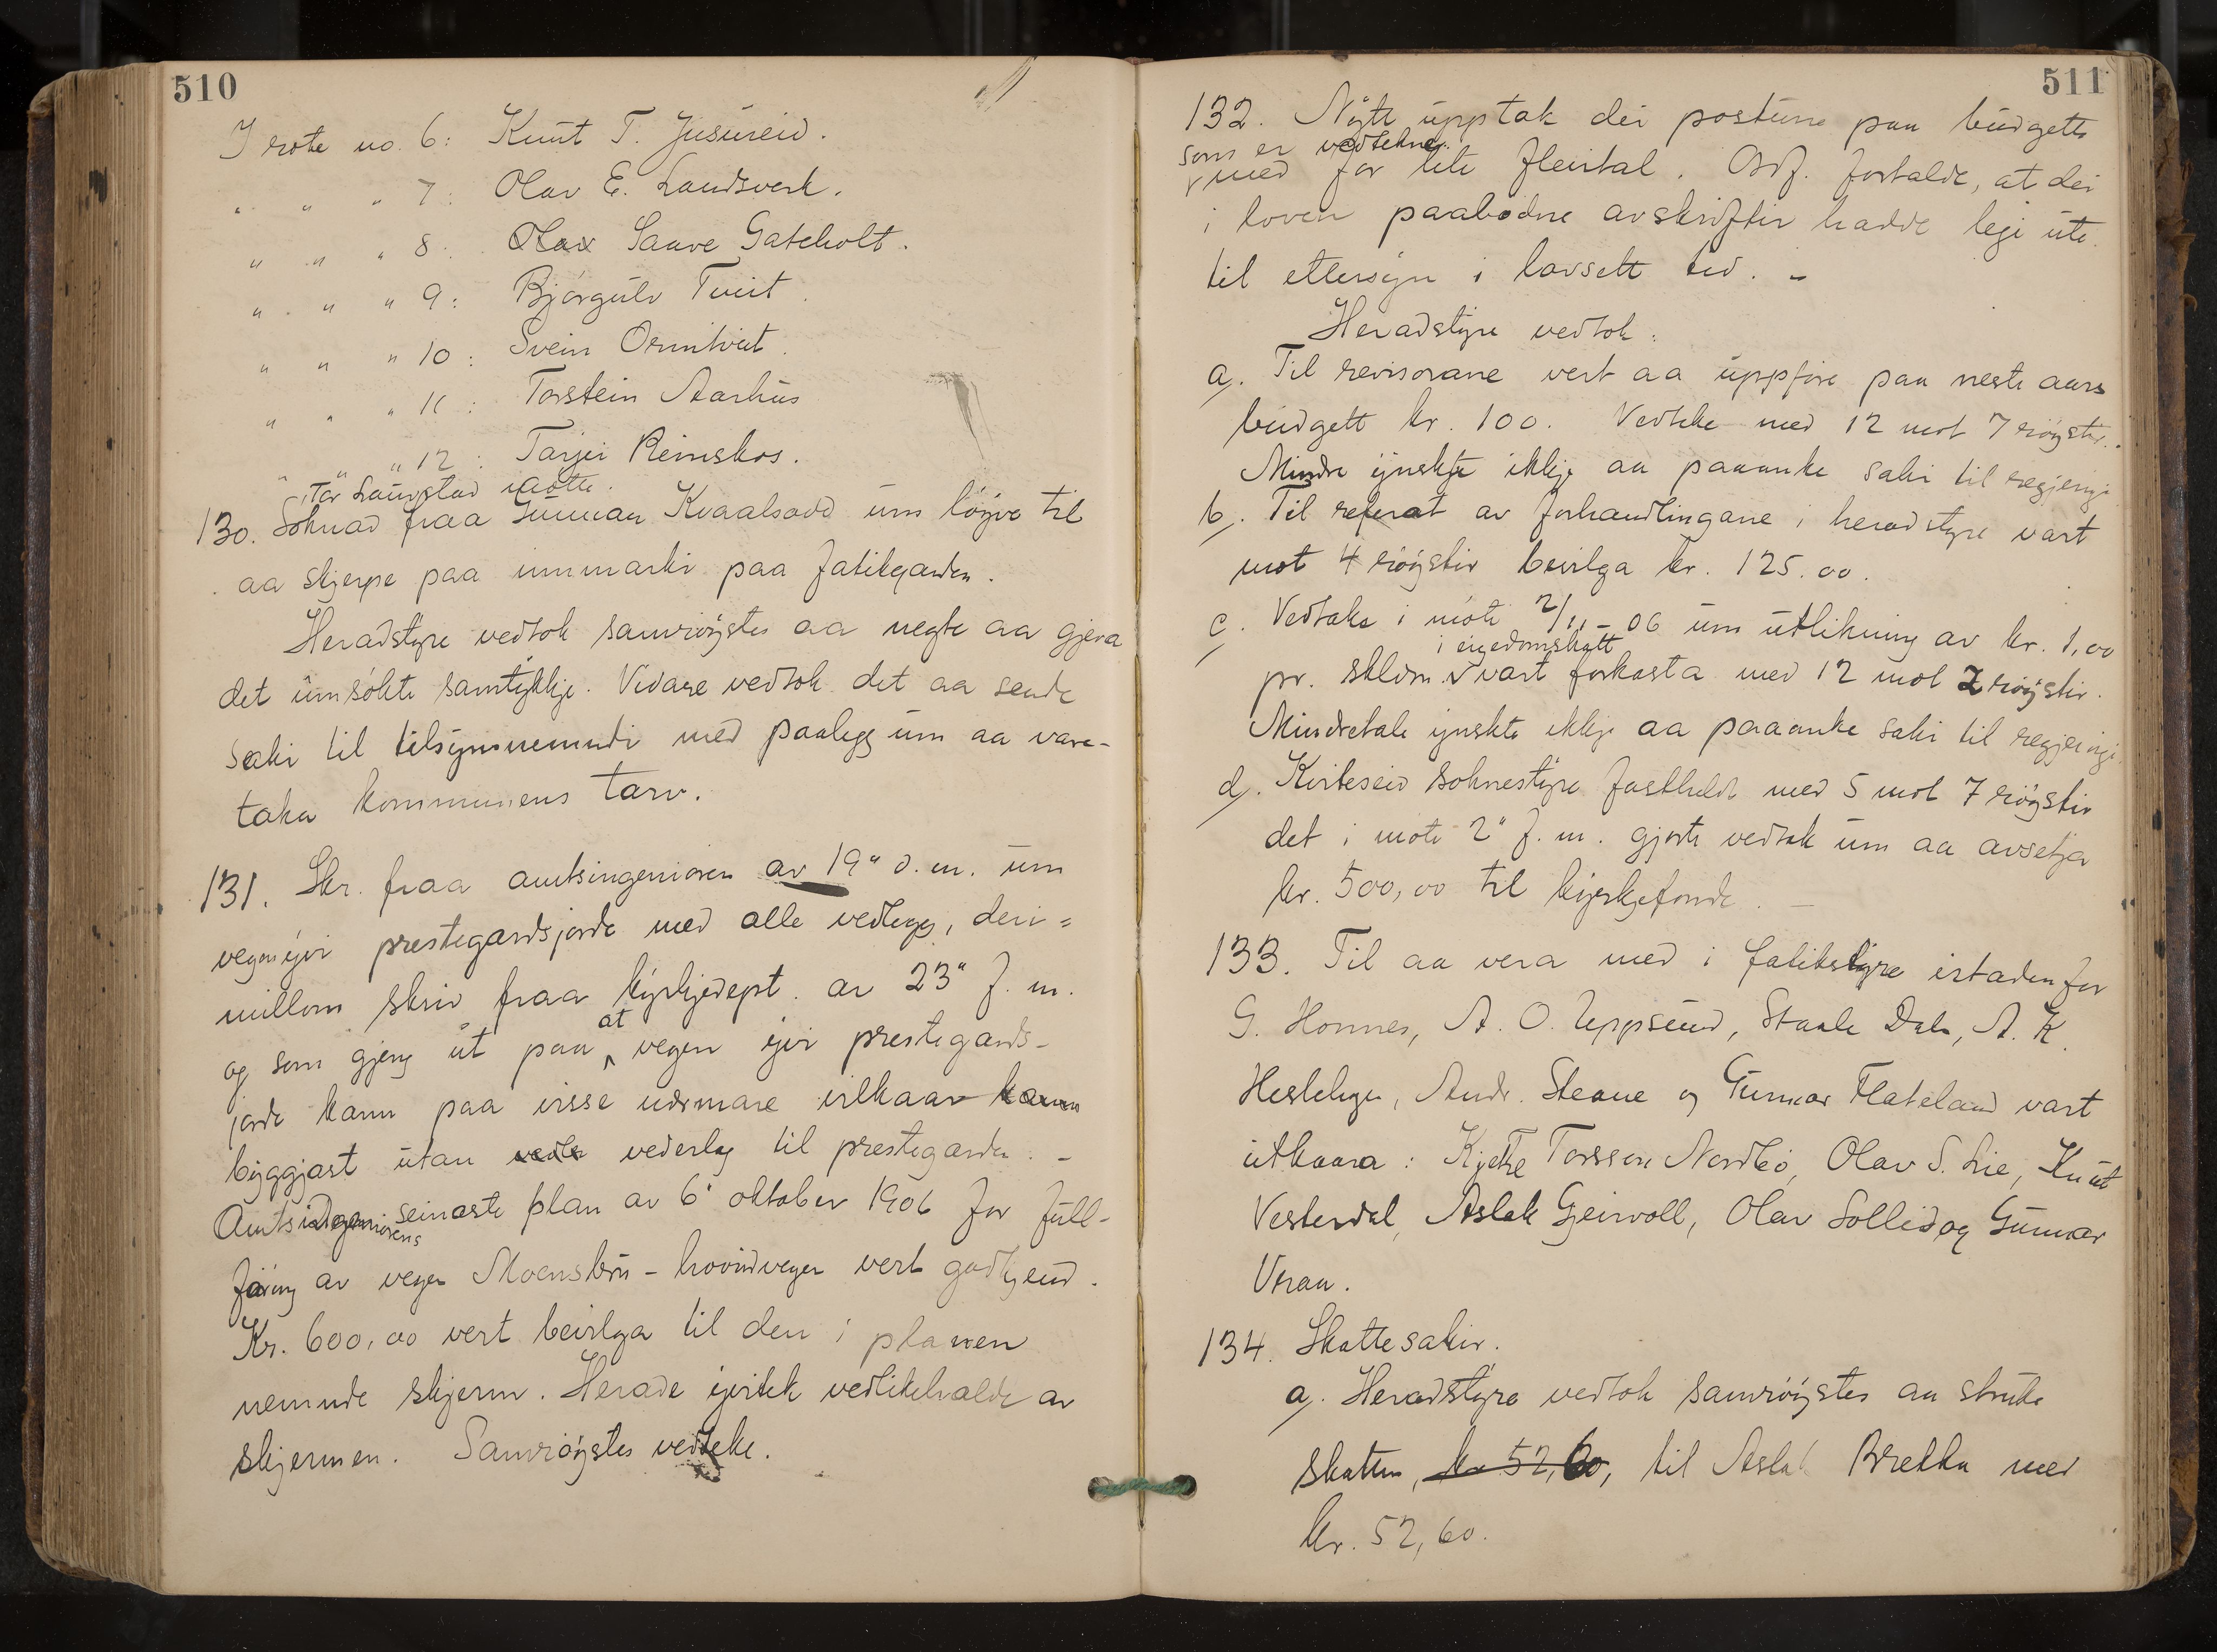 510
I rote no. 6: Knut T. Jusureid.
" " " 7: Olav E. Landsverk.
" " " 8. Olav Saave Gateholt.
" " " 9: Bjørgulv Tveit.
" " " 10: Svein Ormtveit.
" " " 11: Torstein Aarhus
" " " 12: Tarjei Rimskos.
Tor Laurstad møtte.
130. Søknad fraa Gunnar Kvaalsodd um løyve til
aa skjerpe paa innmarki paa fatikgarden.
Heradstyre vedtok samrøystes aa negte aa gjeva
det umsøkte samtykkje. Vidare vedtok det aa sende
saki til tilsynsnemndi med paalegg um aa vare-
taka kommunens tarv.
131. Skr. fraa amtsingeniøren av 19" d.m. um
vegen yvi prestegardsjorde med alle vedlegg, deri=
millom skriv fraa kyrkjedept. av 23" f.m.
og som gjeng ut paa at vegen yvi prestegards-
jorde kann paa visse nærmare vilkaar kann
byggjast utan vede vederlag til prestegarden. -
Amtsingeniørens seinaste plan av 6' oktober 1906 for full-
føring av vegen Moenskru - hovudvegen vert godkjend.
Kr. 600,00 vert beivilga til den i planen
nemnde skjerm. Herade yvitek vedlikehalde av
skjermen. Samrøystes vedteke.
511
132. Nytt upptak dei postune paa budgette
som er vedtekne
med for lite fleirtal. Ordf. fortalde, at dei
i loven paabodne avskrifter hadde legi ute
til ettersyn i lovsett tid. -
Heradstyre vedtok:
a). Til revisorane vert aa uppføre paa neste aars
budgett kr. 100. Vedteke med 12 mot 7 røyster.
Mindre ynskte ikkje aa paaanke saki til regjeringi
b). Til referat av forhandlingane i heradstyre vart
mot 4 røyster bevilga kr. 125.00.
c. Vedtake i møte 2/11-06 um utlikning av kr. 1,00
i eigedomskatt
pr. skldm. vart forkasta med 12 mot 7 røyster.
Mindretale ynskte ikkje aa paaanke saki til regjeringi.
d). Kviteseid soknestyre fasthelt med 5 mot 7 røyster
det i møte 2" f.m. gjorte vedtak um aa avsetja
kr. 500,00 til kyrkjefonde. -
133. Til aa vera med i fatikstyre istadenfor
G. Homnes, A. O. Uppsund, Staale Dale, A. K.
Hestehagen, Andr. Steane og Gunnar Flateland vart
utkaara: Kjetil Torsson Nordbø, Olav S. Lie, Knut
Vesterdal, Aslak Geirvoll, Olav Sollid og Gunnar
Vraa.
134. Skattesakir.
a). Heradstyre vedtok samrøystes aa stryke
skatten, kr 52,60, til Aslak Brekka med
kr. 52,60.